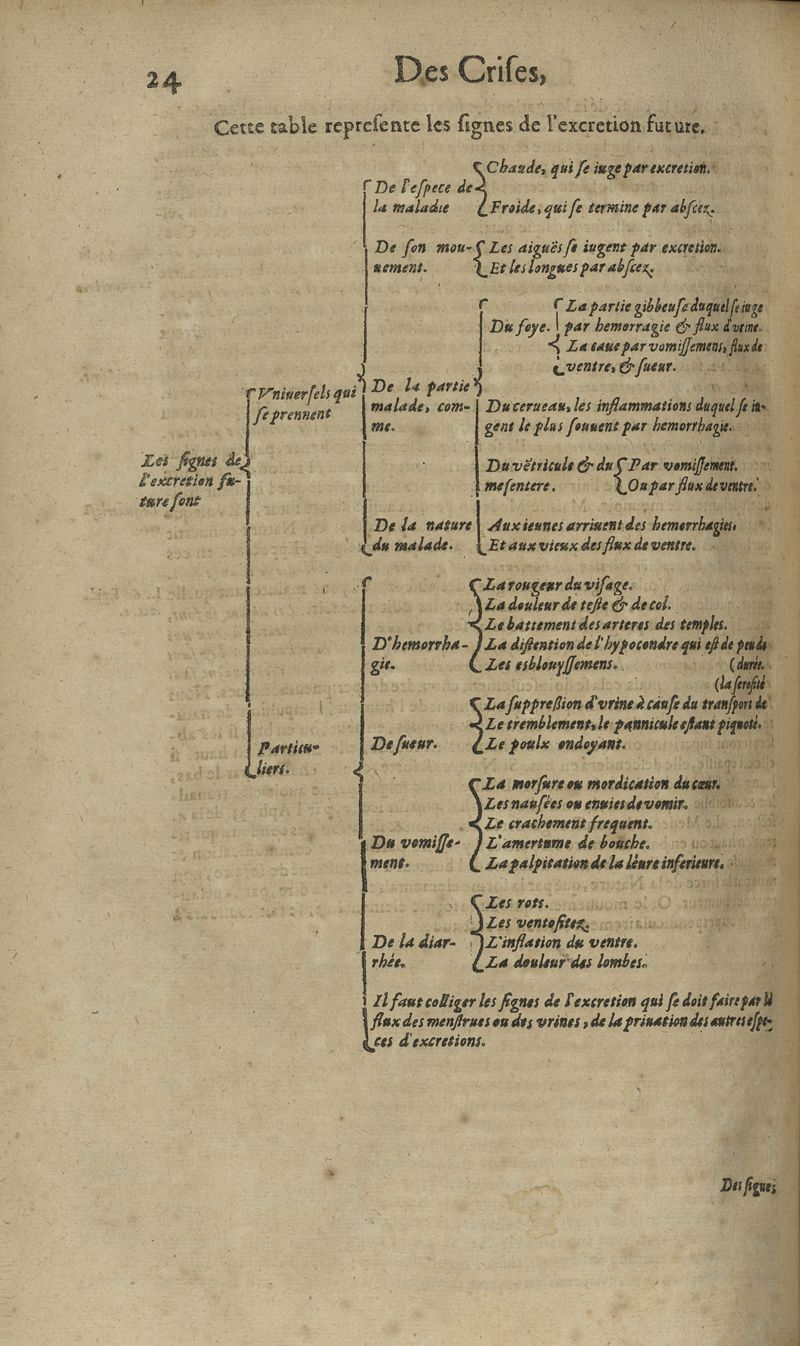 24
Des Criſes,
Cette table repreſente les ſignes de l'excretion future.
Les ſignes de
l'excretion fu-
ture ſont
Vniuerſels qui
ſe prennent
De l'eſpece de
la maladie
Chaude, qui ſe iuge par excretion.
Froide, qui ſe termine par abſcez.
De ſon mou-
uement.
Les aiguës ſe iugent par excretion.
Et les longues par abſcez.
De la partie
malade, com-
me.
Du foye.
La partie gibbeuſe duquel ſe iuge
par hemorragie & flux d'vrine.
La caue par vomiſſemens, flux de
ventre, & ſueur.
Du cerueau, les inflammations duquel ſe iu-
gent le plus ſouuent par hemorrhagie.
Du vẽtricule & du
meſentere.
Par vomiſſement.
Ou par flux de ventre.
De la nature
du malade.
Aux ieunes arriuent des hemorrhagies,
Et aux vieux des flux de ventre.
Particu-
liers.
D'hemorrha-
gie.
La rougeur du viſage.
La douleur de teſte & de col.
Le battement des arteres des temples.
La diſtention de l'hypocondre qui eſt de peu de
Les esblouyſſemens. (durée.
(la ſeroſité
De ſueur.
La ſuppreſſion d'vrine à cauſe du tranſport de
Le tremblement, le pannicule eſtant piquoté.
Le poulx ondoyant.
Du vomiſſe-
ment.
La morſure ou mordication du cœur.
Les nauſées ou enuies de vomir.
Le crachement frequent.
L'amertume de bouche.
La palpitation de la léure inferieure.
De la diar-
rhée.
Les rots.
Les ventoſitez.
L'inflation du ventre.
La douleur des lombes.
Il faut colliger les ſignes de l'excretion qui ſe doit faire par le
flux des menſtrues ou des vrines, de la priuation des autres eſpe-
ces d'excretions.
Des ſignes